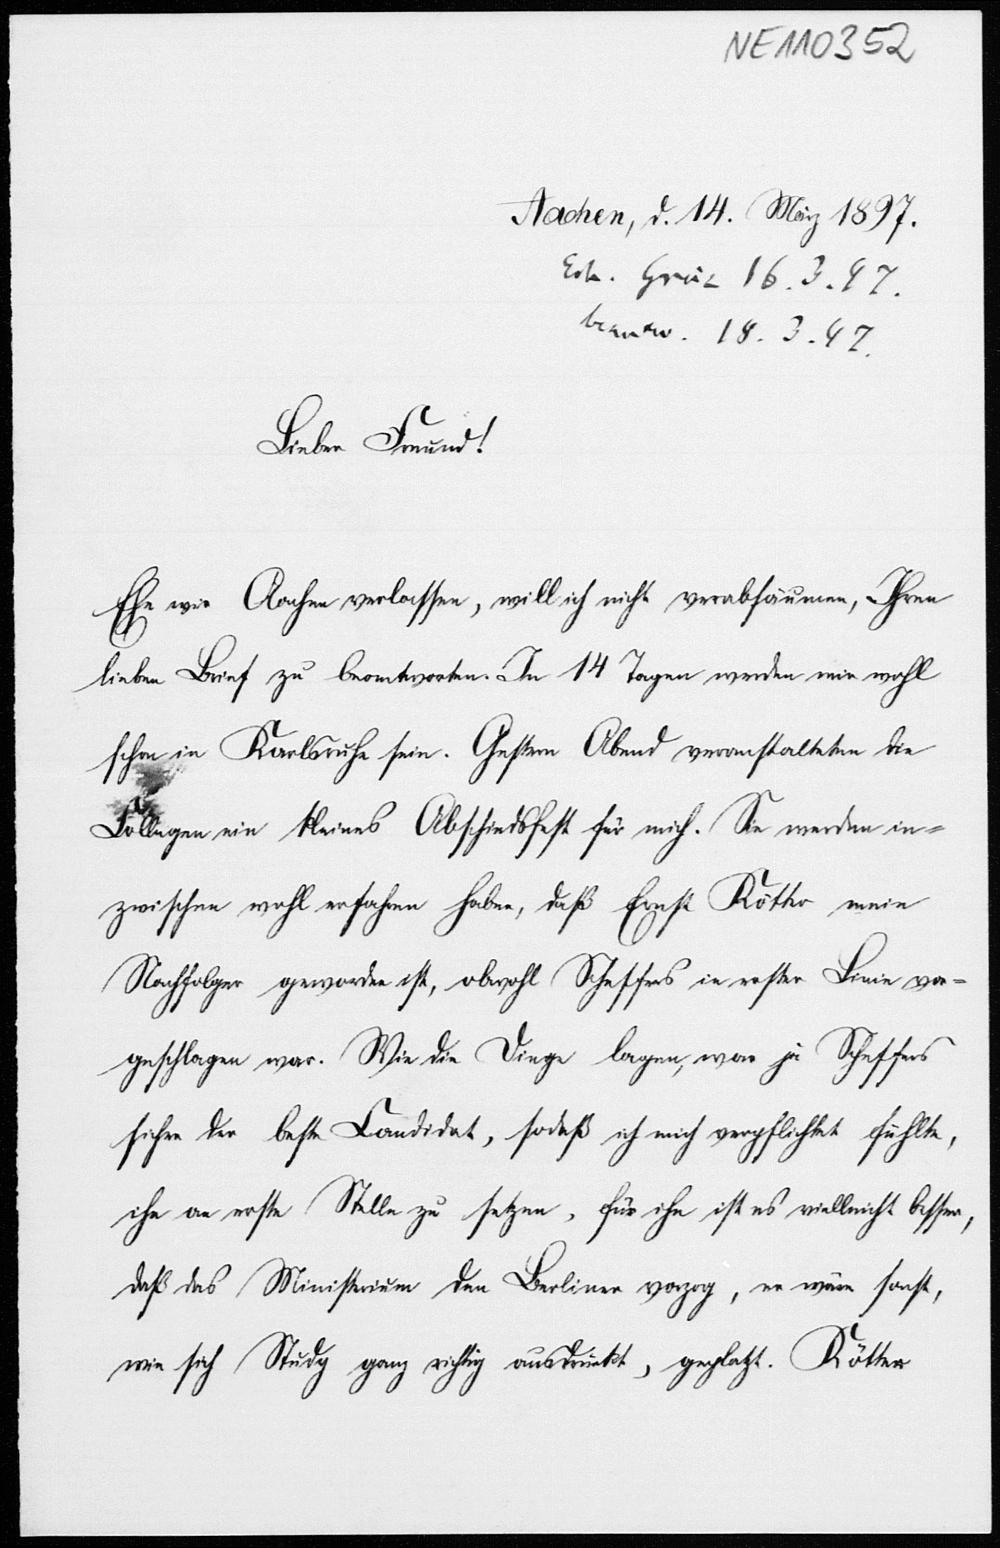 NE110352
Aachen, d. 14. März 1897.
Erh. Graz 16.3.97.
beantw. 18.3.97.
Lieber Freund!
Ehe wir Aachen verlassen, will ich nicht verabsäumen, Ihren
lieben Brief zu beantworten. In 14 Tagen werden wir wohl
schon in Karlsruhe sein. Gestern Abend veranstalteten die
Collegen ein kleines Abschiedsfest für mich. Sie werden in=
zwischen wohl erfahren haben, daß Ernst Kötter mein
Nachfolger geworden ist, obwohl Scheffers in erster Linie vor=
geschlagen war. Wie die Dinge lagen, war ja Scheffers
sicher der beste Candidat, sodaß ich mich verpflichtet fühlte,
ihn an erste Stelle zu setzen, für ihn ist es vielleicht besser,
daß das Ministerium den Berliner vorzog, er wäre sonst,
wie sich Study ganz richtig ausdrückt, geplatzt. Kötter